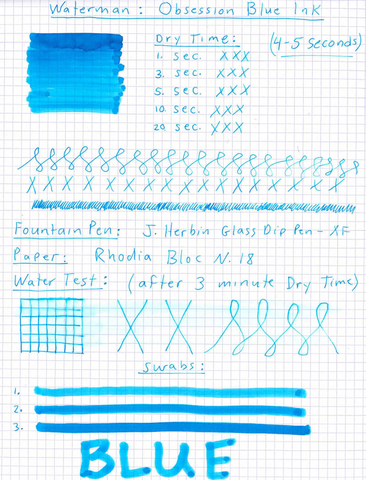 Waterman: Obsession Blue Ink
Dry Time:
(4-5 Seconds)
1. sec. XXX
3. sec. XXX
5. sec. XXX
10. sec. XXX
20. sec. XXX
X X X X X X X X X X X X X X X X X X
Fountain Pen: J. Herbin Glass Dip Pen - XF
Paper: Rhodia Bloc N. 18
Water Test: (after 3 minute Dry Time)
X X
Swabs:
1.
2.
3.
BLUE